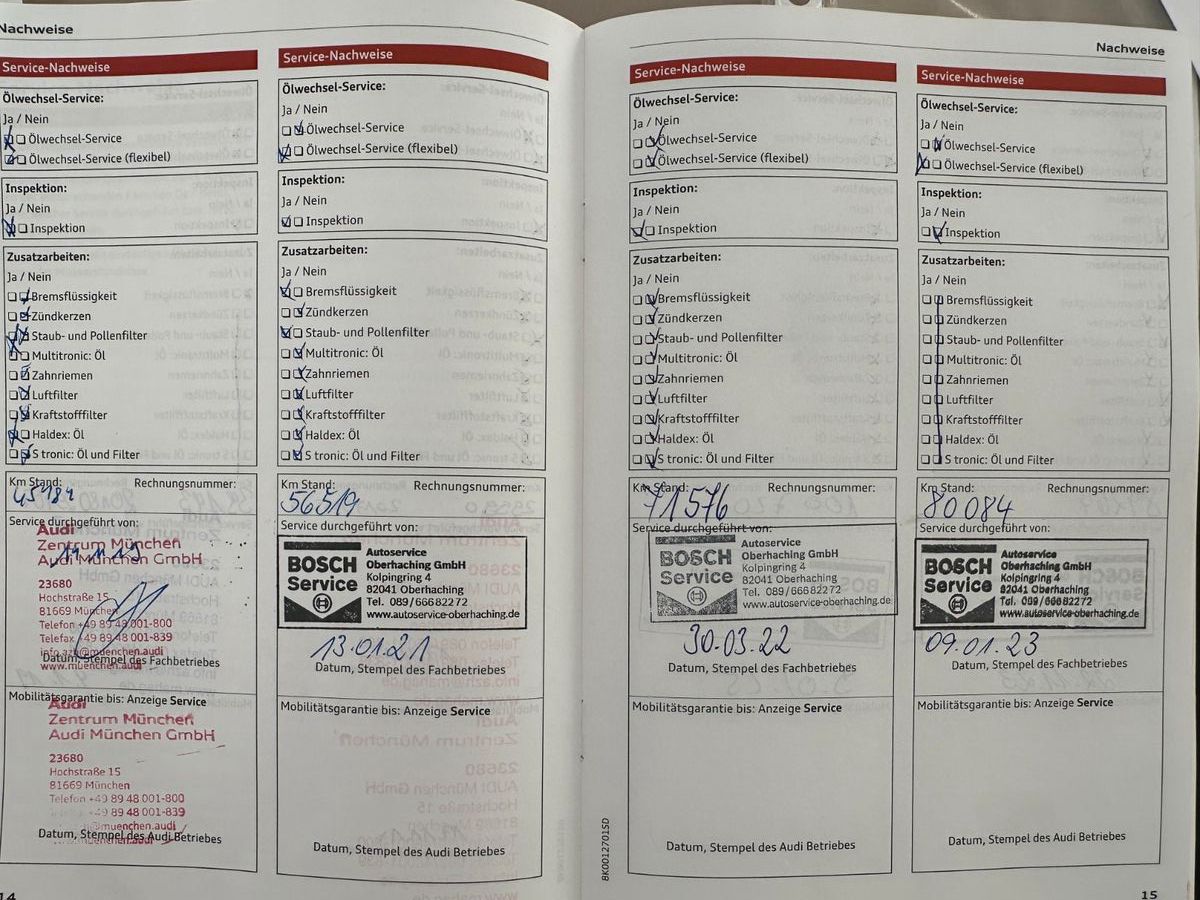 Nachweise
Service-Nachweise
Ölwechsel-Service:
Ja / Nein
Ölwechsel-Service
Ölwechsel-Service (flexibel)
Inspektion:
Ja / Nein
Inspektion
Zusatzarbeiten:
Ja / Nein
Bremsflüssigkeit
Zündkerzen
Staub- und Pollenfilter
Multitronic: Öl
Zahnriemen
Luftfilter
Kraftstofffilter
Haldex: Öl
S tronic: Öl und Filter
Km Stand: Rechnungsnummer:
45184
Service durchgeführt von:
Audi
Zentrum München
Audi München GmbH
19.11.19
23680
Hochstraße 15
81669 München
Telefon +49 89 48 001-800
Telefax +49 89 48 001-839
info.azm@muenchen.audi
www.muenchen.audi
Datum, Stempel des Fachbetriebes
Mobilitätsgarantie bis: Anzeige Service
Audi
Zentrum München
Audi München GmbH
23680
Hochstraße 15
81669 München
Telefon +49 89 48 001-800
+49 89 48 001-839
@muenchen.audi
muenchen.audi
Datum, Stempel des Audi Betriebes
14
Service-Nachweise
Ölwechsel-Service:
Ja / Nein
Ölwechsel-Service
Ölwechsel-Service (flexibel)
Inspektion:
Ja / Nein
Inspektion
Zusatzarbeiten:
Ja / Nein
Bremsflüssigkeit
Zündkerzen
Staub- und Pollenfilter
Multitronic: Öl
Zahnriemen
Luftfilter
Kraftstofffilter
Haldex: Öl
S tronic: Öl und Filter
Km Stand: Rechnungsnummer:
56519
Service durchgeführt von:
BOSCH
Service
Autoservice
Oberhaching GmbH
Kolpingring 4
82041 Oberhaching
Tel. 089/66682272
www.autoservice-oberhaching.de
13.01.21
Datum, Stempel des Fachbetriebes
Mobilitätsgarantie bis: Anzeige Service
Datum, Stempel des Audi Betriebes
Nachweise
Service-Nachweise
Ölwechsel-Service:
Ja / Nein
Ölwechsel-Service
Ölwechsel-Service (flexibel)
Inspektion:
Ja / Nein
Inspektion
Zusatzarbeiten:
Ja / Nein
Bremsflüssigkeit
Zündkerzen
Staub- und Pollenfilter
Multitronic: Öl
Zahnriemen
Luftfilter
Kraftstofffilter
Haldex: Öl
S tronic: Öl und Filter
Km Stand: Rechnungsnummer:
71576
Service durchgeführt von:
BOSCH
Service
Autoservice
Oberhaching GmbH
Kolpingring 4
82041 Oberhaching
Tel. 089/66682272
www.autoservice-oberhaching.de
30.03.22
Datum, Stempel des Fachbetriebes
Mobilitätsgarantie bis: Anzeige Service
Datum, Stempel des Audi Betriebes
BK0012701SD
Service-Nachweise
Ölwechsel-Service:
Ja / Nein
Ölwechsel-Service
Ölwechsel-Service (flexibel)
Inspektion:
Ja / Nein
Inspektion
Zusatzarbeiten:
Ja / Nein
Bremsflüssigkeit
Zündkerzen
Staub- und Pollenfilter
Multitronic: Öl
Zahnriemen
Luftfilter
Kraftstofffilter
Haldex: Öl
S tronic: Öl und Filter
Km Stand: Rechnungsnummer:
80084
Service durchgeführt von:
BOSCH
Service
Autoservice
Oberhaching GmbH
Kolpingring 4
82041 Oberhaching
Tel. 089/66682272
www.autoservice-oberhaching.de
09.01.23
Datum, Stempel des Fachbetriebes
Mobilitätsgarantie bis: Anzeige Service
Datum, Stempel des Audi Betriebes
15